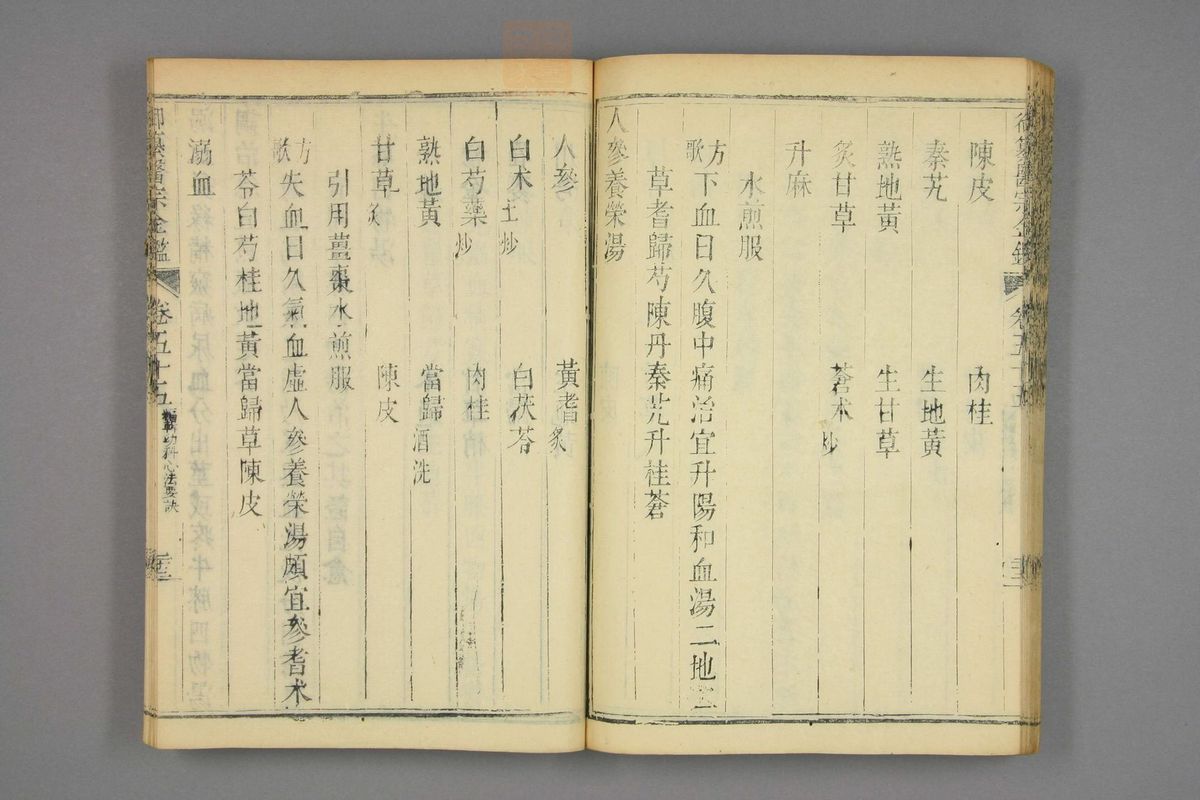 陳皮 肉桂
秦艽 生地黃
熟地黃 生甘草
炙甘草 蒼朮炒
升麻
水煎服
方歌 下血日久腹中痛治宜升陽和血湯二地
草耆歸芍陳丹秦艽升桂蒼
人參養榮湯
人參 黃耆炙
白朮土炒 白茯苓
白芍藥炒 肉桂
熟地黃 當歸酒洗
甘草炙 陳皮
引用薑棗水煎服
方歌 失血日久氣血虛人參養榮湯頗宜參耆朮
苓白芍桂地黃當歸草陳皮
溺血
御纂醫宗金鑑 卷五十五 幼科心法要訣